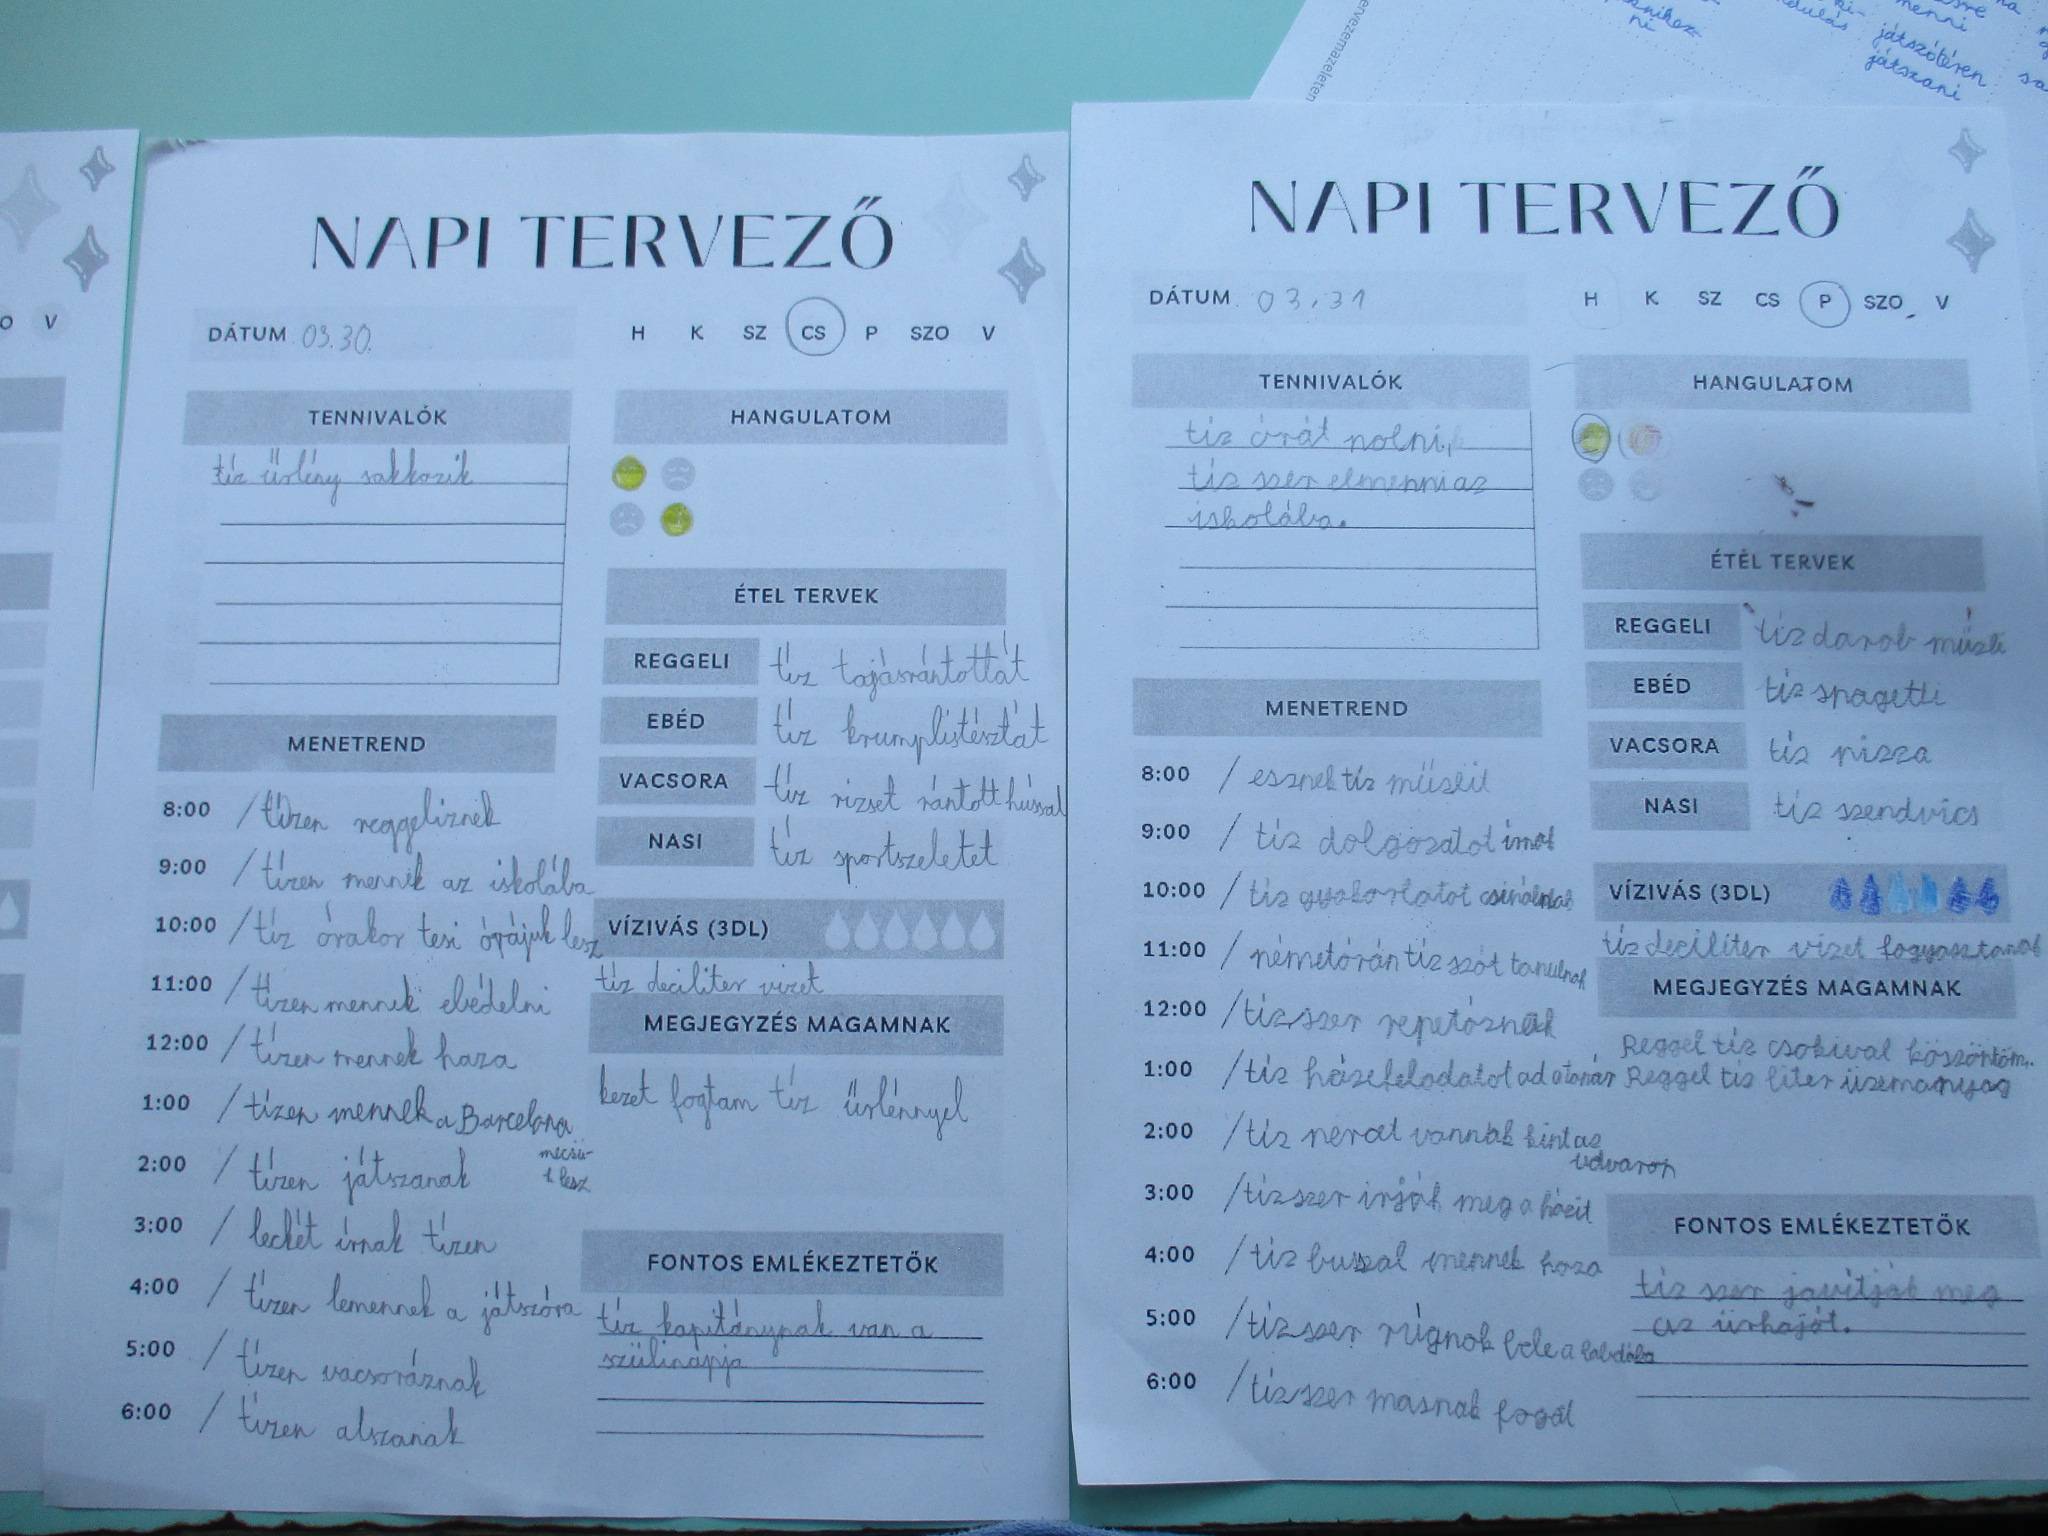 O V
NAPI TERVEZŐ
DÁTUM 03.30.
H K SZ CS P SZO V
TENNIVALÓK
tíz űrlény sakkozik
MENETREND
8:00 / tízen reggeliznek
9:00 / tízen mennek az iskolába
10:00 / tíz órakor tesi órájuk lesz
11:00 / tízen mennek ebédelni
12:00 / tízen mennek haza
1:00 / tízen mennek a Barcelona
mecsü-
k lesz
2:00 / tízen játszanak
3:00 / leckét írnak tízen
4:00 / tízen lemennek a játszóra
5:00 / tízen vacsoráznak
6:00 / tízen alszanak
HANGULATOM
ÉTEL TERVEK
REGGELI tíz tojásrántottát
EBÉD tíz krumplistésztát
VACSORA tíz rizset rántott hússal
NASI tíz sportszeletet
VÍZIVÁS (3DL)
tíz deciliter vizet
MEGJEGYZÉS MAGAMNAK
kezet fogtam tíz űrlénnyel
FONTOS EMLÉKEZTETŐK
tíz kapitánynak van a
szülinapja
NAPI TERVEZŐ
DÁTUM 03.31
H K SZ CS P SZO V
TENNIVALÓK
tíz órát
tíz szer elmenni az
iskolába.
MENETREND
8:00 / esznek tíz
9:00 / tíz dolgozatot írnak
10:00 / tíz gyakorlatot csinálnak
11:00 / németórán tíz szót tanulnak
12:00 / tízszer repetáznak
1:00 / tíz házifeladatot ad a tanár
2:00 / tíz percet vannak kint az
udvaron
3:00 / tízszer írják meg a házit
4:00 / tíz busszal mennek haza
5:00 / tízszer rúgnak bele a labdába
6:00 / tízszer mosnak fogat
HANGULATOM
ÉTEL TERVEK
REGGELI tíz darab müzli
EBÉD tíz spagetti
VACSORA tíz pizza
NASI tíz szendvics
VÍZIVÁS (3DL)
tíz deciliter vizet fogyasztanak
MEGJEGYZÉS MAGAMNAK
Reggel tíz csokival köszöntöm..
Reggel tíz liter üzemanyag
FONTOS EMLÉKEZTETŐK
tíz szer javítják meg
az űrhajót.
menni
ni
játszótéren
játszani